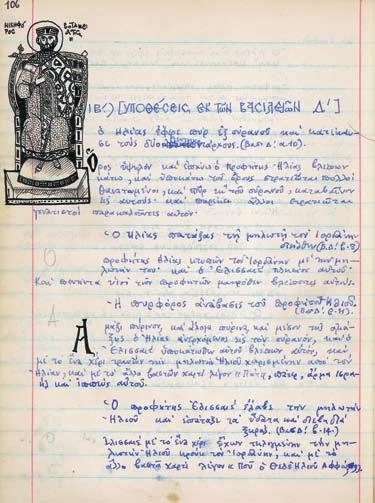 106
ΝΙΚΗΦΟ ΒΟΤΑΝΕΙ
ΡΟΣ ΑΤΗΣ
ΙΒ΄.) [ΥΠΟΘΕΣΕΙΣ ΕΚ ΤΩΝ ΒΑΣΙΛΕΙΩΝ Δ΄]
Ὁ Ἠλίας ἔφερε πῦρ ἐξ οὐρανοῦ καί κατέκαυ-
σε τούς δύο πεντηκοντάρχους. (Βασ. Δ΄. α.10).
Ὄρος ὑψηλόν καί ἐπάνω ὁ προφήτης Ἠλίας βλέπων
κάτω, καί ὑποκάτω τοῦ ὄρους στρατιῶται πολλοί
θανατωμένοι, καί πῦρ ἐκ τοῦ οὐρανοῦ, καταβαῖνον
εἰς αὐτούς. καί ἄλλοι στρατιῶται
γονατιστοί παρακαλοῦντες αὐτόν.
Ὁ Ἠλίας πατάξας τῇ μηλωτῇ τόν Ἰορδάνην
διῆλθεν (Β.Δ΄. β. 8)
προφήτης Ἠλίας κτυπῶν τόν Ἰορδάνην μέ τήν μη-
λωτήν του. καί ὁ Ἐλισσαῖε πλησίον αὐτοῦ.
Καί πενῆντα υἱοί τῶν προφητῶν μακρόθεν βλέποντες αὐτούς.
- Ἡ πυρφόρος ἀνάβασις τοῦ προφήτου Ἠλιοῦ.
(Βασ. Δ΄. β. 11).
Ἅμαξα πύρινος, καί ἄλογα πύρινα, καί μέσον τῆς ἁμά-
ξης ὁ Ἠλίας ἀνερχόμενος εἰς τόν οὐρανόν, καί ὁ
Ἐλισσαῖε ὑποκάτωθεν αὐτοῦ βλέπων αὐτόν, καί
μέ τό ἕνα χέρι τραβῶν τήν μηλωτήν Ἠλιοῦ χαριζομένην ἀπό τόν
Ἠλίαν, καί μέ τό ἄλλο βαστῶν χαρτί λέγον « Πάτερ, πάτερ, ἅρμα Ἰσρα-
ήλ καί ἱππεύς αὐτοῦ.
Ὁ προφήτης Ἐλισσαῖε ἔλαβε τήν μηλωτήν
Ἠλιοῦ καί ἐπάταξε τά ὕδατα καί διέβη διά
ξηρᾶς. (Βασ. Δ΄. β. 14.)
Ἐλισσαῖε μέ τό ἕνα χέρι ἔχων τυλιγμένην τήν μη-
λωτήν Ἠλιοῦ κρούει τόν Ἰορδάνην, καί μέ τό
ἄλλο βαστᾷ χαρτί λέγον « Ποῦ ὁ Θεός Ἠλιοῦ Ἀφφώ;